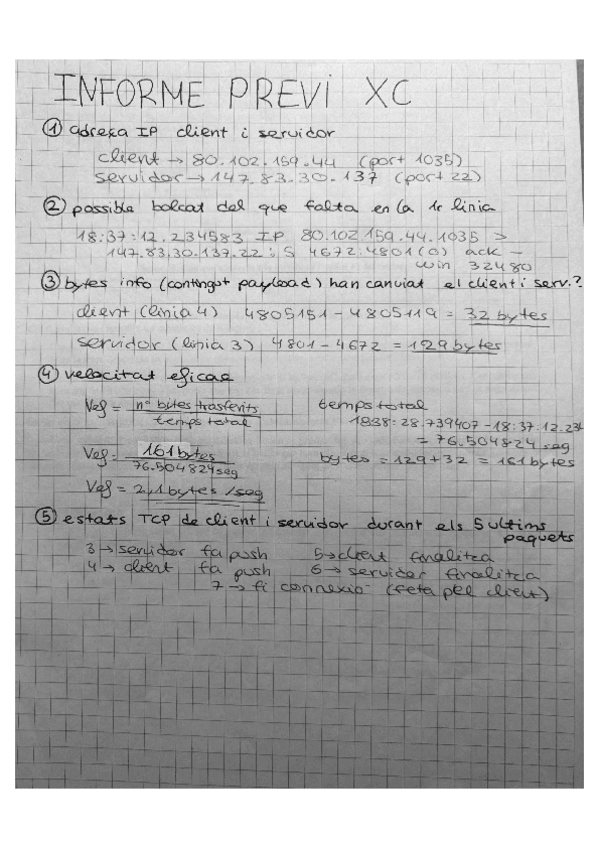 INFORME PREVI XC
① adreça IP client i servidor
client → 80.102.159.44 (port 1035)
servidor → 147.83.30.137 (port 22)
② possible bolcat del que falta en la 1r linia
18:37:12.234583 IP 80.102.159.44.1035 >
147.83.30.137.22: S 4672:4801(0) ack -
win 32480
③ bytes info (contingut payload) han canviat el client i serv.?
client (linia 4) | 4805151 - 4805119 = 32 bytes
servidor (linia 3) | 4801 - 4672 = 129 bytes
④ velocitat eficaç
Vef = nº bytes trasferits / temps total
temps total
18:38:28.739407 - 18:37:12.234
= 76.504824 seg
Vef = 161 bytes / 76.504824 seg
bytes = 129 + 32 = 161 bytes
Vef = 2,1 bytes/seg
⑤ estats TCP de client i servidor durant els 5 ultims
paquets
3 → servidor fa push 5 → client finalitza
4 → client fa push 6 → servidor finalitza
7 → fi connexio (feta pel client)